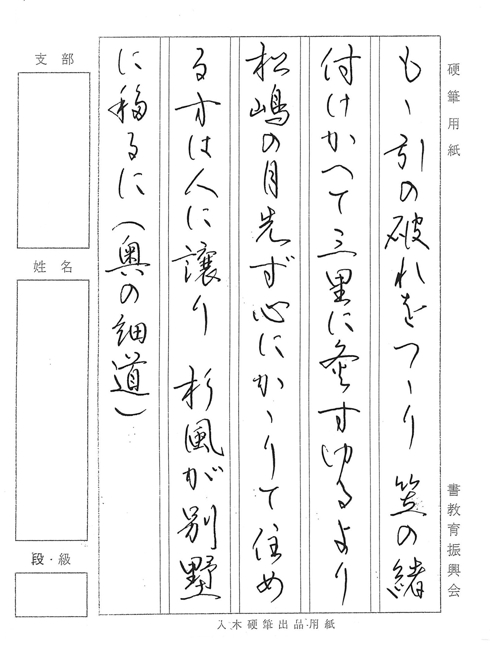 硬筆用紙
書教育振興会
もゝ引の破れをつゝり 笠の緒
付けかへて三里に灸すゆるより
松嶋の月先ず心にかゝりて住め
る方は人に譲り 杉風が別墅
に移るに(奥の細道)
支部
姓名
段・級
入木硬筆出品用紙